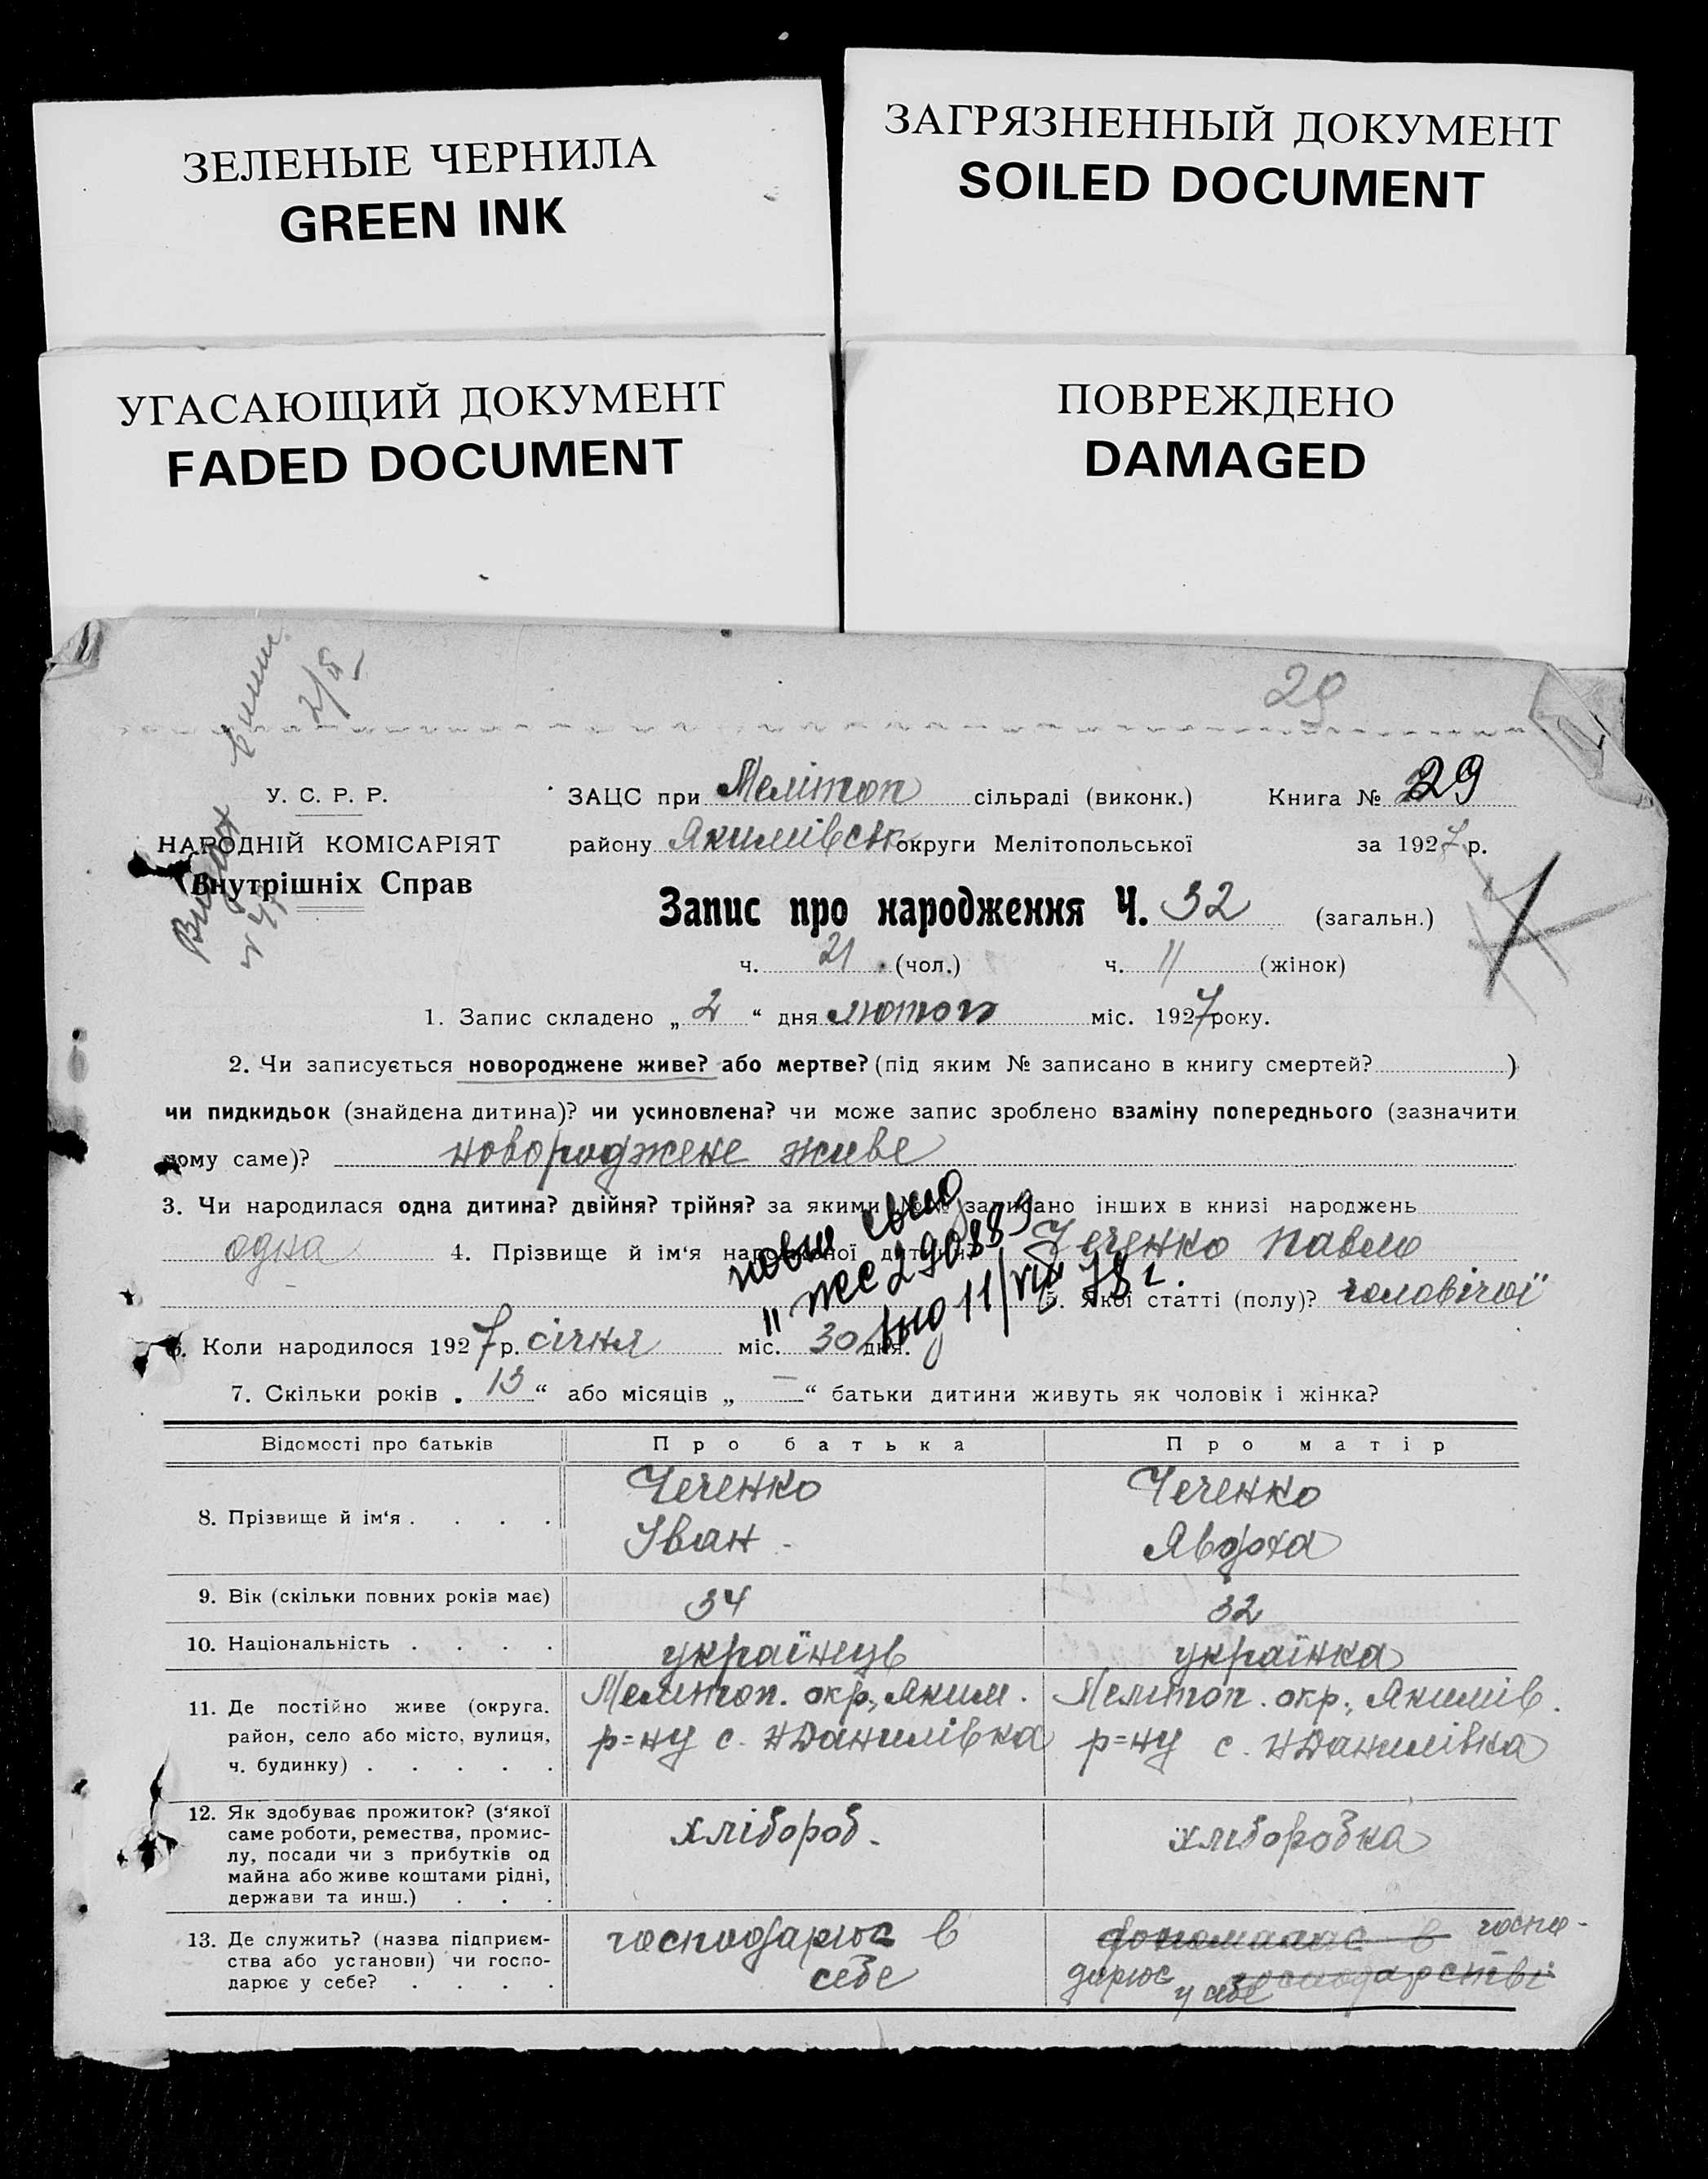 ЗЕЛЕНЫЕ ЧЕРНИЛА
GREEN INK
ЗАГРЯЗНЕННЫЙ ДОКУМЕНТ
SOILED DOCUMENT
УГАСАЮЩИЙ ДОКУМЕНТ
FADED DOCUMENT
ПОВРЕЖДЕНО
DAMAGED
29
У. С. Р. Р.
НАРОДНІЙ КОМІСАРІЯТ
Внутрішніх Справ
ЗАЦС при Меліт��п сільраді (виконк.) Книга № 29
району Якимівськ округи Мелітопольської за 1927 р.
Запис про народження Ч. 32 (загальн.)
ч. 21 (чол.) ч. 11 (жінок)
1. Запис складено „2“ дня лютого міс. 1927 року.
2. Чи записується новороджене живе? або мертве? (під яким № записано в книгу смертей? )
чи пидкидьок (знайдена дитина)? чи усиновлена? чи може запис зроблено взаміну попереднього (зазначити
чому саме)? новороджене живе
3. Чи народилася одна дитина? двійня? трійня? за якими №№ записано інших в книзі народжень
одна 4. Прізвище й ім'я народженої дитини Чеченко Павло
5. Якої статті (полу)? чоловічої
6. Коли народилося 1927 р. січня міс. 30 дня.
7. Скільки років „13“ або місяців „—“ батьки дитини живуть як чоловік і жінка?
Відомості про батьків Про батька Про матір
8. Прізвище й ім'я . . . . Чеченко Чеченко
Іван Явдоха
9. Вік (скільки повних років має) 34 32
10. Національність . . . . українець українка
11. Де постійно живе (округа, район, село або місто, вулиця, ч. будинку) . . . . .
Мелітоп. окр., Яким. р=ну с. НДанилівка
Мелітоп. окр., Якимів. р=ну с. НДанилівка
12. Як здобуває прожиток? (з'якої
саме роботи, ремества, промис-
лу, посади чи з прибутків од
майна або живе коштами рідні,
держави та инш.) . . .
хлібороб. хліборобка
13. Де служить? (назва підприєм-
ства або установи) чи госпо-
дарює у себе? . . . .
господарює в
себе
госпо-
дарює у себе
нов. свид
ЖС 290889
11/VIII 78 г.